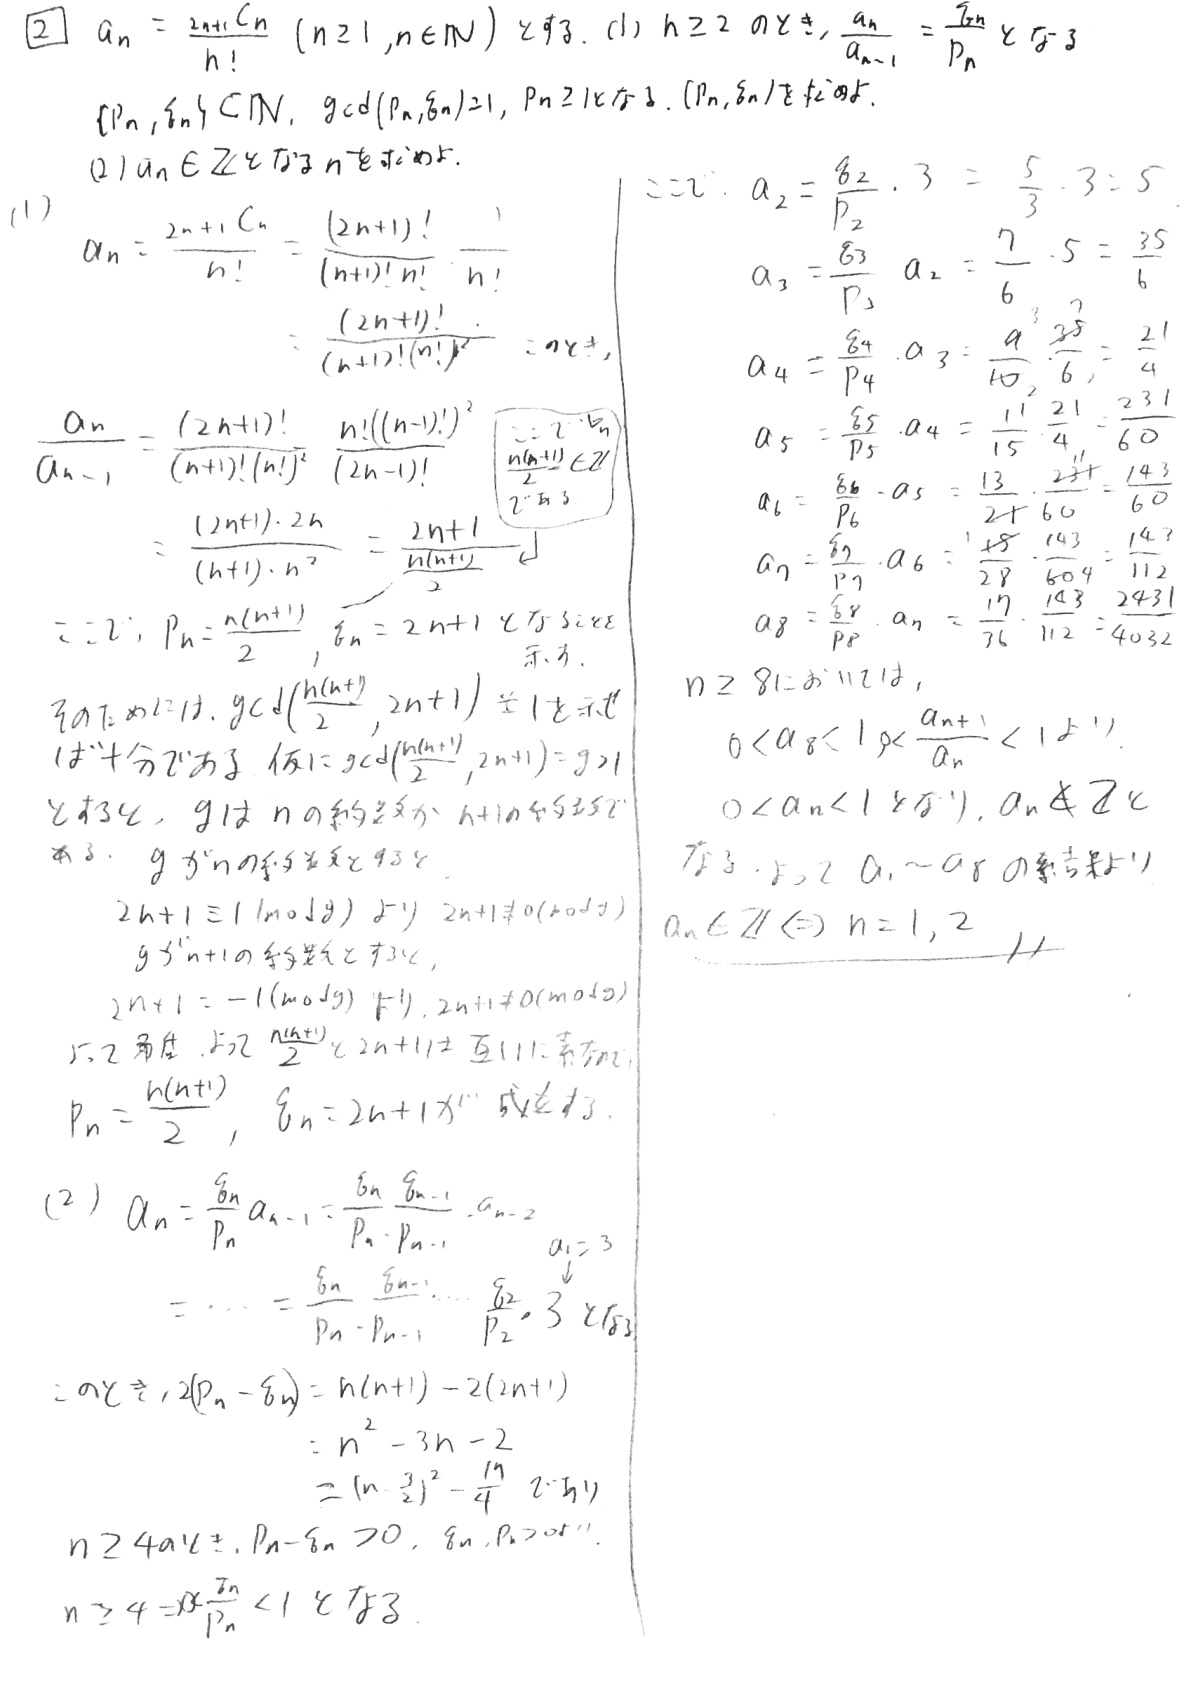 2 a_n = 2n+1Cn / n! (n≥1, n∈ℕ) とする. (1) n≥2 のとき, a_n/a_{n-1} = q_n/p_n となる
{p_n, q_n} ⊂ ℕ, gcd(p_n, q_n)=1, p_n≥1となる. (p_n, q_n)を求めよ.
(2) a_n ∈ ℤ となる n を求めよ.
(1)
a_n = 2n+1Cn / n! = (2n+1)! / (n+1)! n! · 1/n!
= (2n+1)! / (n+1)!(n!)² このとき,
a_n/a_{n-1} = (2n+1)! / (n+1)!(n!)² n!((n-1)!)² / (2n-1)!
ここで
n(n+1)/2 ∈ ℤ
である
= (2n+1)·2n / (n+1)·n² = 2n+1 / (n(n+1)/2)
ここで, p_n = n(n+1)/2, q_n = 2n+1 となることを
示す.
そのためには, gcd(n(n+1)/2, 2n+1) = 1を示せ
ば十分である 仮に gcd(n(n+1)/2, 2n+1) = g>1
とすると, gは nの約数か n+1の約数で
ある. gがnの約数とすると
2n+1 ≡ 1 (mod g) より 2n+1≢0(mod g)
gがn+1の約数とすると,
2n+1 = -1(mod g) より, 2n+1≢0(mod g)
よって矛盾. よって n(n+1)/2 と 2n+1は 互いに素なので,
p_n = n(n+1)/2, q_n = 2n+1が 成立する.
(2) a_n = q_n/p_n a_{n-1} = q_n/p_n · q_{n-1}/p_{n-1} · a_{n-2}
a_1 = 3
↓
= ... = q_n/p_n · q_{n-1}/p_{n-1} ... q_2/p_2 · 3 となる
このとき, 2(p_n - q_n) = n(n+1) - 2(2n+1)
= n² - 3n - 2
= (n - 3/2)² - 17/4 であり
n≥4のとき, p_n - q_n >0, q_n, p_n >0より.
n≥4 ⇒ 0< q_n/p_n <1 となる.
ここで. a_2 = q_2/p_2 · 3 = 5/3 · 3 = 5
a_3 = q_3/p_3 a_2 = 7/6 · 5 = 35/6
a_4 = q_4/p_4 · a_3 = 9/10 · 35/6 = 21/4
a_5 = q_5/p_5 · a_4 = 11/15 · 21/4 = 231/60
a_6 = q_6/p_6 · a_5 = 13/21 · 231/60 = 143/60
a_7 = q_7/p_7 · a_6 = 15/28 · 143/60 = 143/112
a_8 = q_8/p_8 · a_7 = 17/36 · 143/112 = 2431/4032
n≥8においては,
0<a_8<1, 0< a_{n+1}/a_n <1より.
0<a_n<1となり, a_n ∉ ℤと
なる. よって a_1〜a_8 の結果より
a_n∈ℤ ⇔ n=1, 2